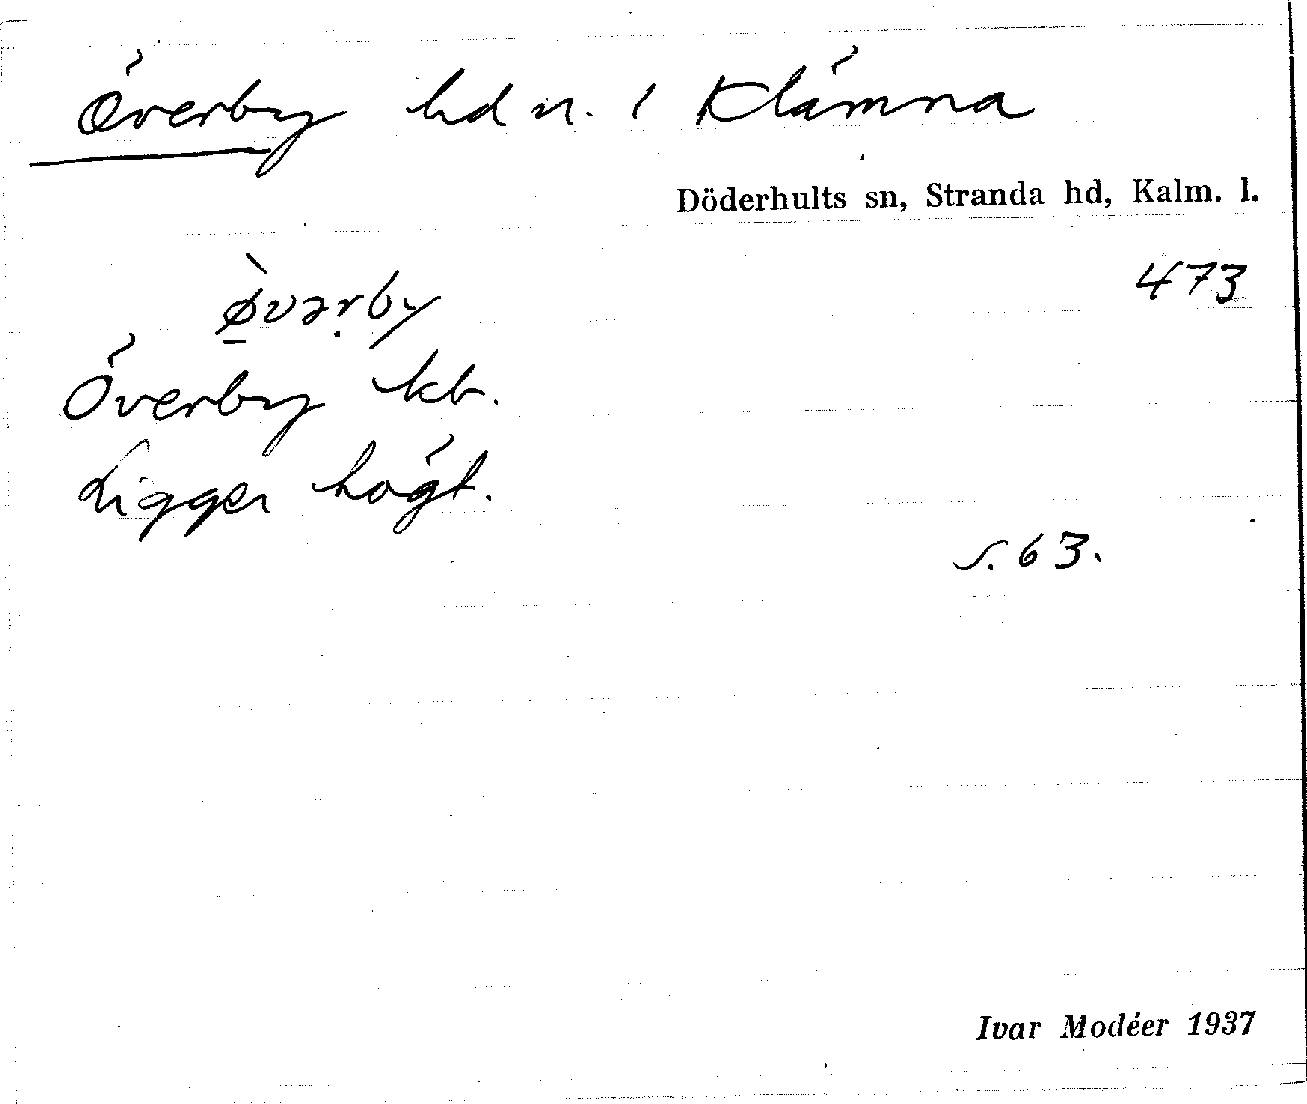 Överby hd n. i Klämna
Döderhults sn, Stranda hd, Kalm. l.
473
ø̱̀vərby
Överby kb.
Ligger högt.
s. 63.
Ivar Modéer 1937